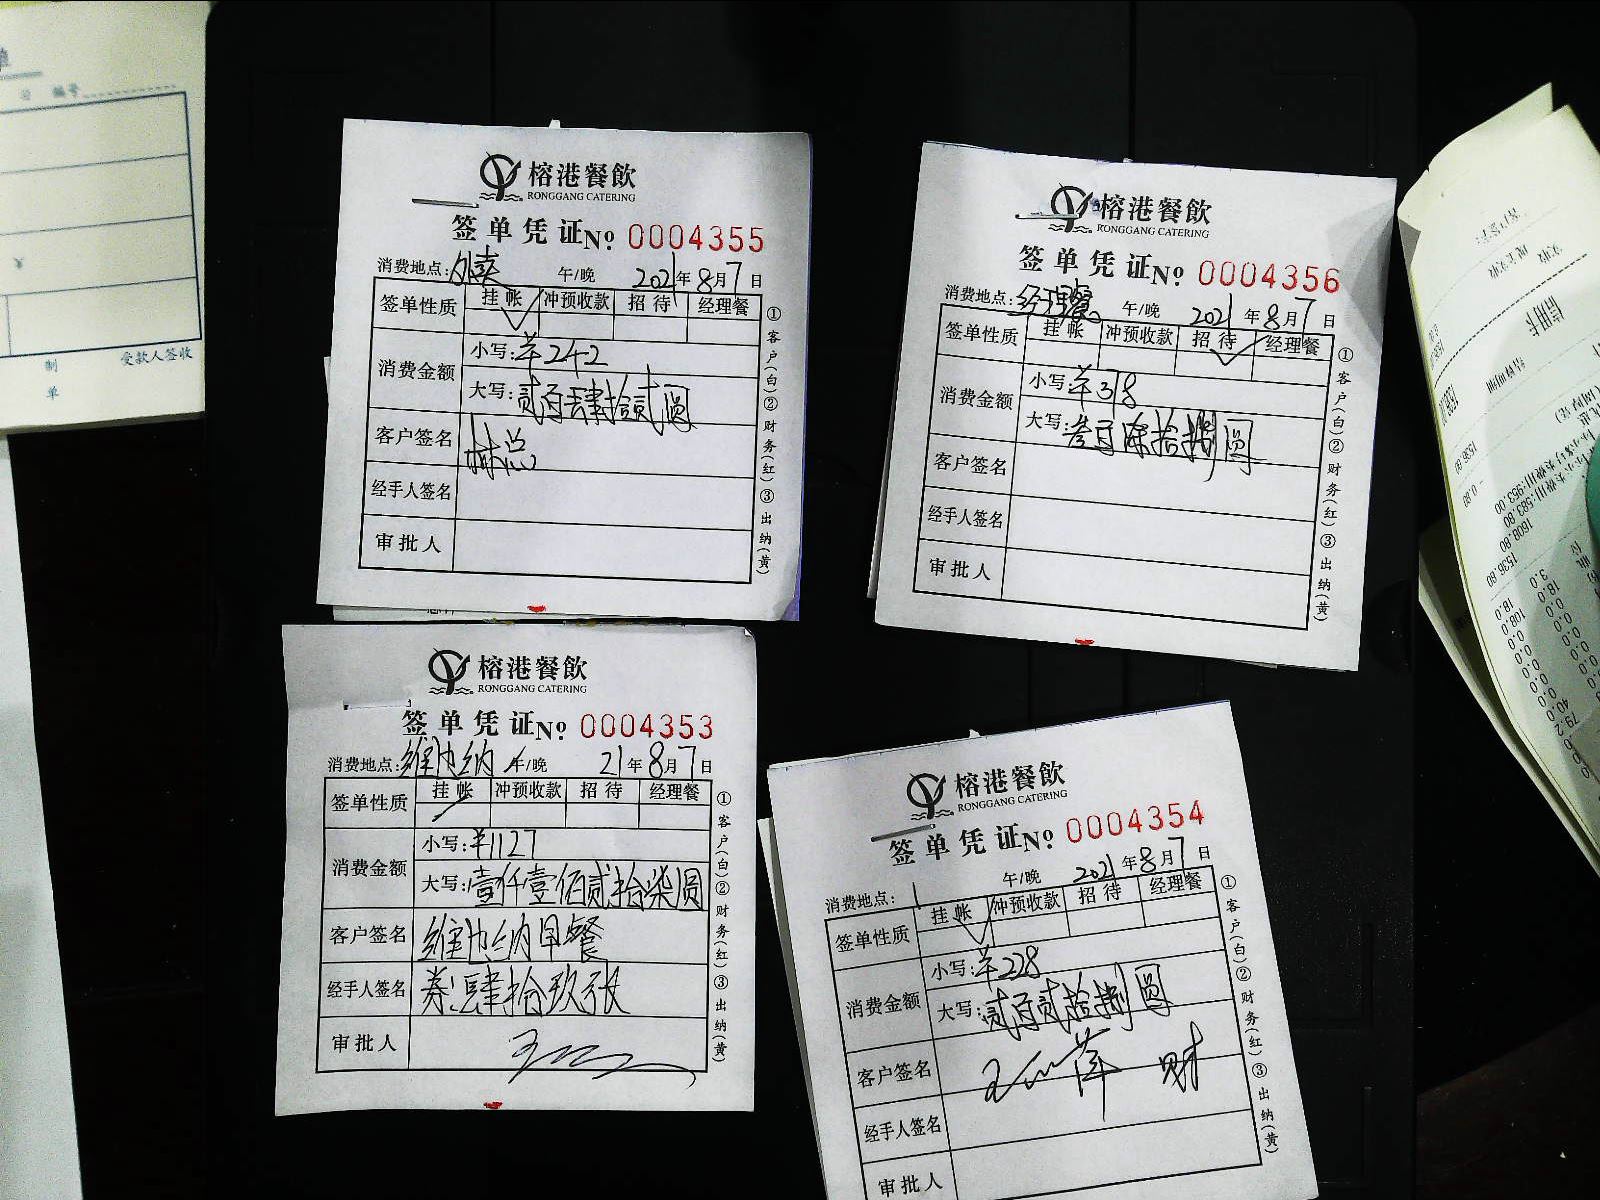 榕港餐飲
RONGGANG CATERING
签单凭证№ 0004355
消费地点: 午/晚 2021年8月7日
签单性质 挂帐 冲预收款 招待 经理餐
消费金额 小写:羊242
大写:贰百肆拾贰圆
客户签名 林总
经手人签名
审批人
①客户(白)②财务(红)③出纳(黄)
榕港餐飲
RONGGANG CATERING
签单凭证№ 0004356
消费地点:经理餐 午/晚 2021年8月7日
签单性质 挂帐 冲预收款 招待 经理餐
消费金额 小写:
大写:叁百 拾捌圆
客户签名
经手人签名
审批人
①客户(白)②财务(红)③出纳(黄)
榕港餐飲
RONGGANG CATERING
签单凭证№ 0004353
消费地点:维也纳 午/晚 21年8月7日
签单性质 挂帐 冲预收款 招待 经理餐
消费金额 小写:¥1127
大写:壹仟壹佰贰拾柒圆
客户签名 维也纳早餐
经手人签名 券:肆拾玖张
审批人
①客户(白)②财务(红)③出纳(黄)
榕港餐飲
RONGGANG CATERING
签单凭证№ 0004354
消费地点: 午/晚 2021年8月7日
签单性质 挂帐 冲预收款 招待 经理餐
消费金额 小写:羊228
大写:贰百贰拾捌圆
客户签名 萍 财
经手人签名
审批人
①客户(白)②财务(红)③出纳(黄)
编号
¥
制单
受款人签收
信用卡
1536.80
1608.80
1536.80
-0.80
3.0
18.0
18.0
108.0
0.0
0.0
40.0
79.2